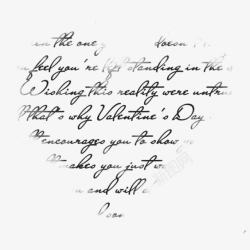 the one doesn
feel you're left standing in the
Wishing this reality were untru
that's why Valentine's Day
encourages you to show
makes you just w
and will